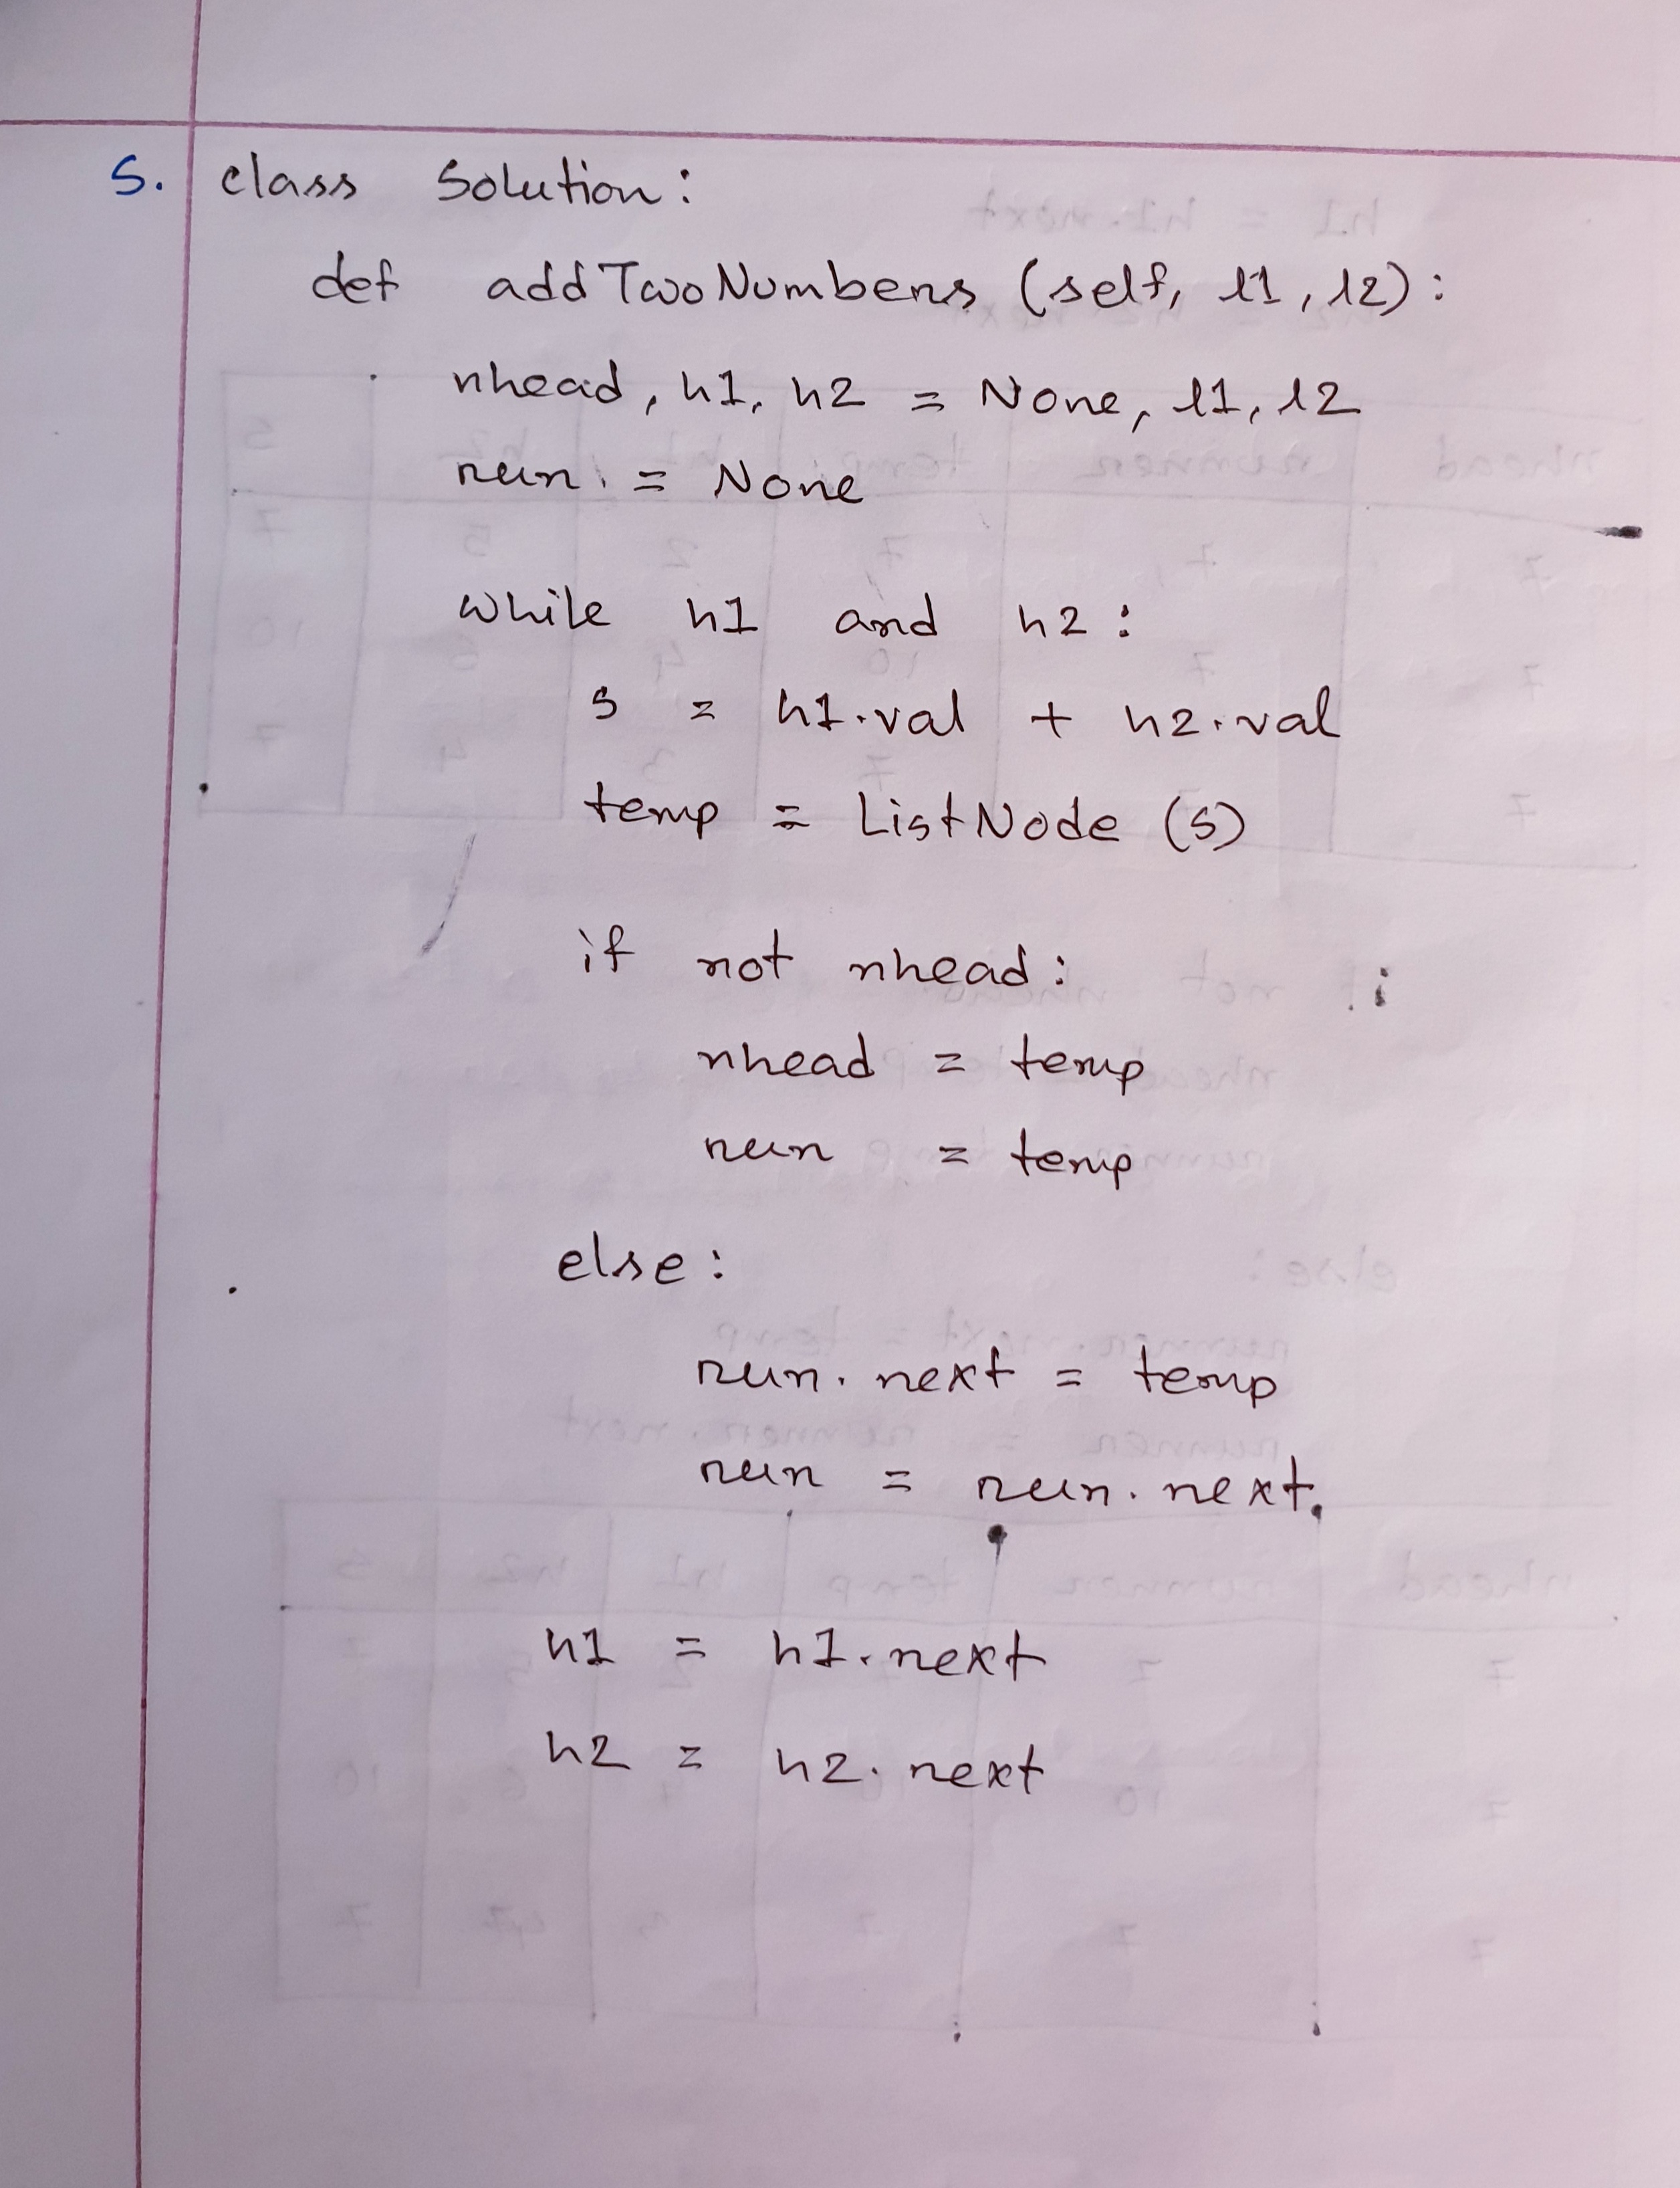 5. class Solution:
def addTwoNumbers (self, l1, l2):
nhead, h1, h2 = None, l1, l2
run = None
while h1 and h2:
s = h1.val + h2.val
temp = ListNode (s)
if not nhead:
nhead = temp
run = temp
else:
run.next = temp
run = run.next
h1 = h1.next
h2 = h2.next